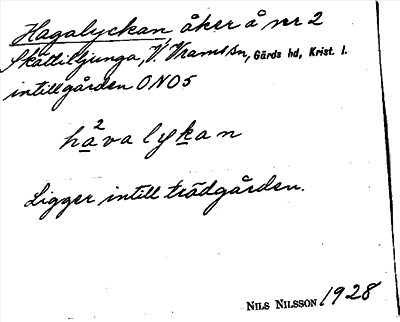 Hagalyckan åker å nr 2
Skättilljunga, V. Vram sn, Gärds hd, Krist. l.
intill gården ONO5
ha²valykan
Ligger intill trädgården.
NILS NILSSON 1928